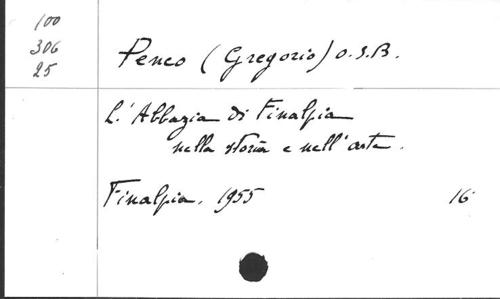 100
306
25
Penco (Gregorio) O.S.B.
L'Abbazia di Finalpia
nella storia e nell'arte.
Finalpia, 1955 16